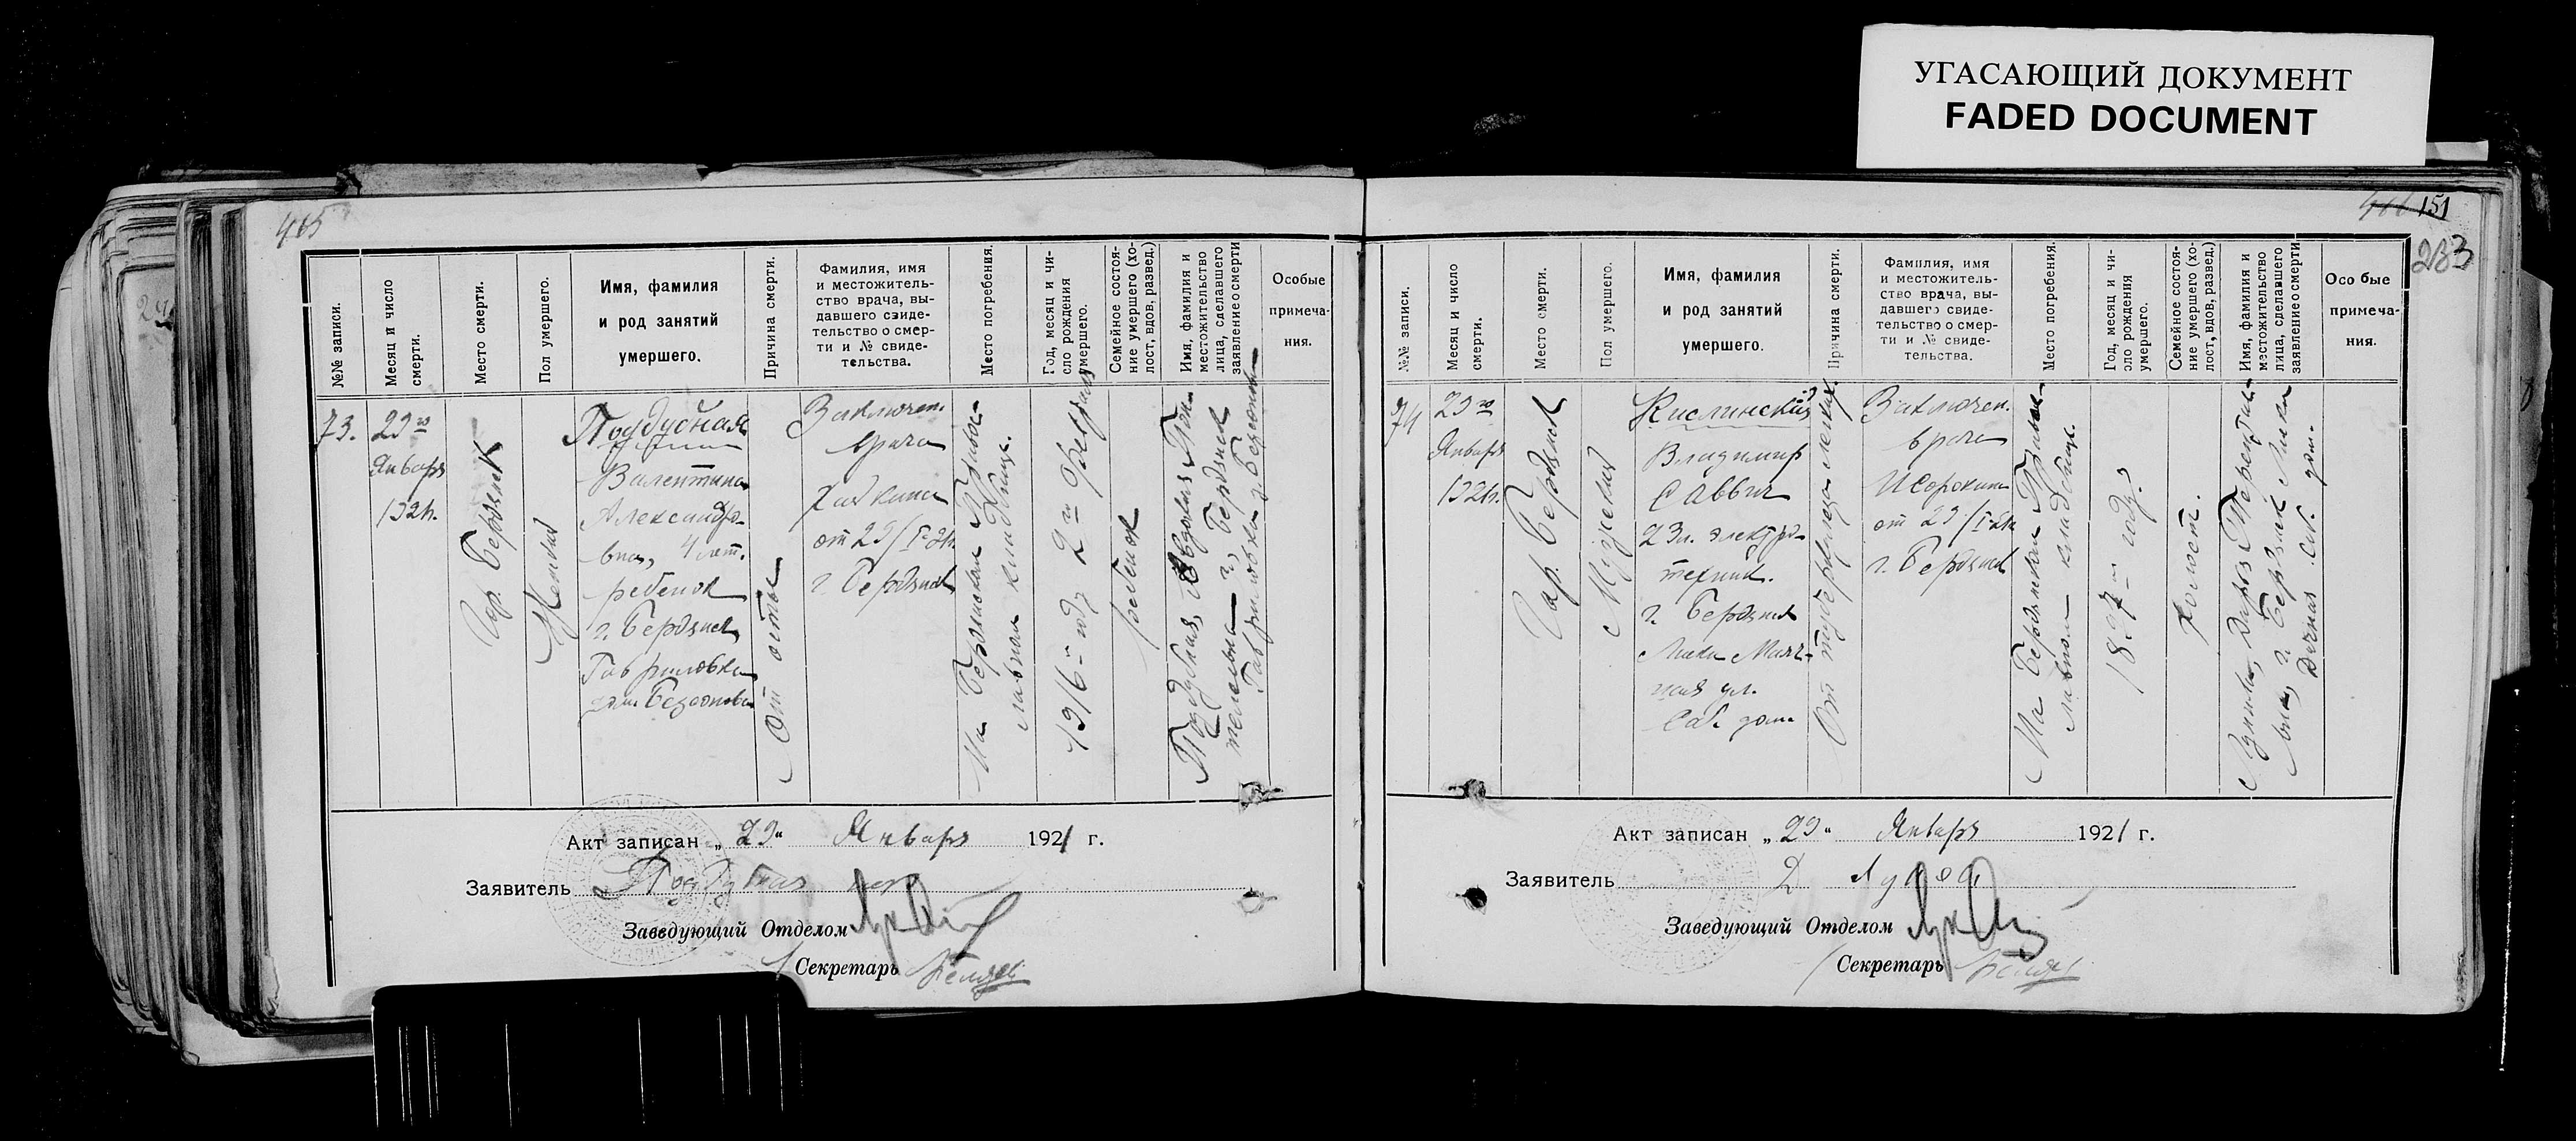 УГАСАЮЩИЙ ДОКУМЕНТ
FADED DOCUMENT
465
№№ записи.
Месяц и число
смерти.
Место смерти.
Пол умершего.
Имя, фамилия
и род занятий
умершего.
Причина смерти.
Фамилия, имя
и местожитель-
ство врача, вы-
давшего свиде-
тельство о смер-
ти и № свиде-
тельства.
Место погребения.
Год, месяц и чи-
сло рождения
умершего.
Семейное состоя-
ние умершего (хо-
лост, вдов, развед.)
Имя, фамилия и
местожительство
лица, сделавшего
заявление о смерти
Особые
примеча-
ния.
73.
29го
Января
1921г.
Гор. Бердянск
Женский
Поддубная
Валентина
Александро-
вна, 4 лет.
ребенок
г. Бердянск
Гавриловка
дом
От оспы
Заключен.
врача
Хавкина
от 29/I-21г.
г. Бердянск
На Бердянском Правос-
лавном кладбище.
1916-году 2го февраля
ребенок
Поддубная, Авдотья Пан-
телеевна г. Бердянск
Гавриловка д.
Акт записан „29“ Января 1921 г.
Заявитель Поддубная
Заведующий Отделом
Секретарь
151
283
№№ записи.
Месяц и число
смерти.
Место смерти.
Пол умершего.
Имя, фамилия
и род занятий
умершего.
Причина смерти.
Фамилия, имя
и местожитель-
ство врача, вы-
давшего свиде-
тельство о смер-
ти и № свиде-
тельства.
Место погребения.
Год, месяц и чи-
сло рождения
умершего.
Семейное состоя-
ние умершего (хо-
лост, вдов, развед.)
Имя, фамилия и
местожительство
лица, сделавшего
заявление о смерти
Особые
примеча-
ния.
74
29го
Января
1921г.
Гор. Бердянск
Мужской
Кислинский
Владимир
Саввич
23л. электро-
техник.
г. Бердянск
Лиски Маяч-
ная ул.
Соб. дом
От туберкулеза легких.
Заключен.
врача
Исорокина
от 29/I-21г
г. Бердянск
На Бердянском Правос-
лавном кладбище.
1897-м году.
Холост.
Дарья Терентье-
вна, г. Бердянск Лиски
соб. дом.
Акт записан „29“ Января 1921 г.
Заявитель Д
Заведующий Отделом
Секретарь